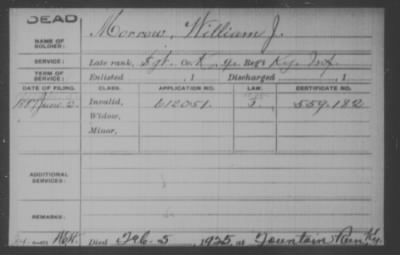 DEAD
NAME OF SOLDIER: Morrow, William J.
SERVICE: Late rank, Sgt. Co. K, 9 Reg't Ky. Inf.
TERM OF SERVICE: Enlisted , 1 Discharged , 1
DATE OF FILING. CLASS. APPLICATION NO. LAW. CERTIFICATE NO.
1887 June 2. Invalid, 612051. 559.182
Widow,
Minor,
ADDITIONAL SERVICES:
REMARKS:
Died Feb. 5, 1925, at Fountain Run Ky.